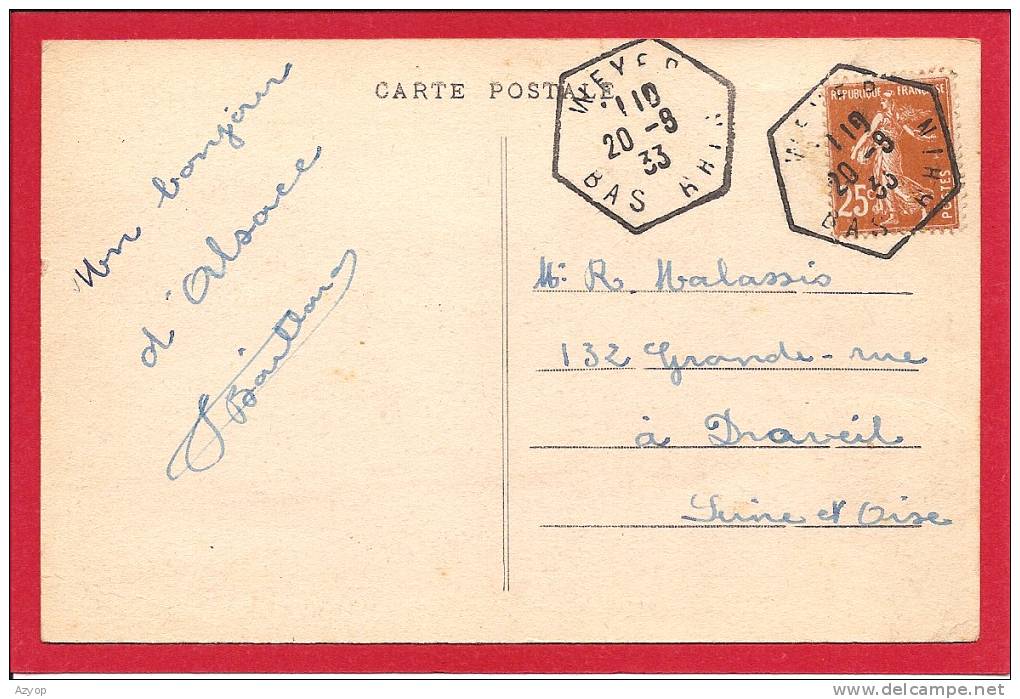 CARTE POSTALE
WEYER
110
20-9
33
BAS RHIN
WEYER
110
20-9
33
BAS RHIN
REPUBLIQUE FRANCAISE
25c
POSTES
Un bonjour
d'Alsace
Mr R. Malassis
132 Grande-rue
à Draveil
Seine et Oise
Azyop
www.delcampe.net